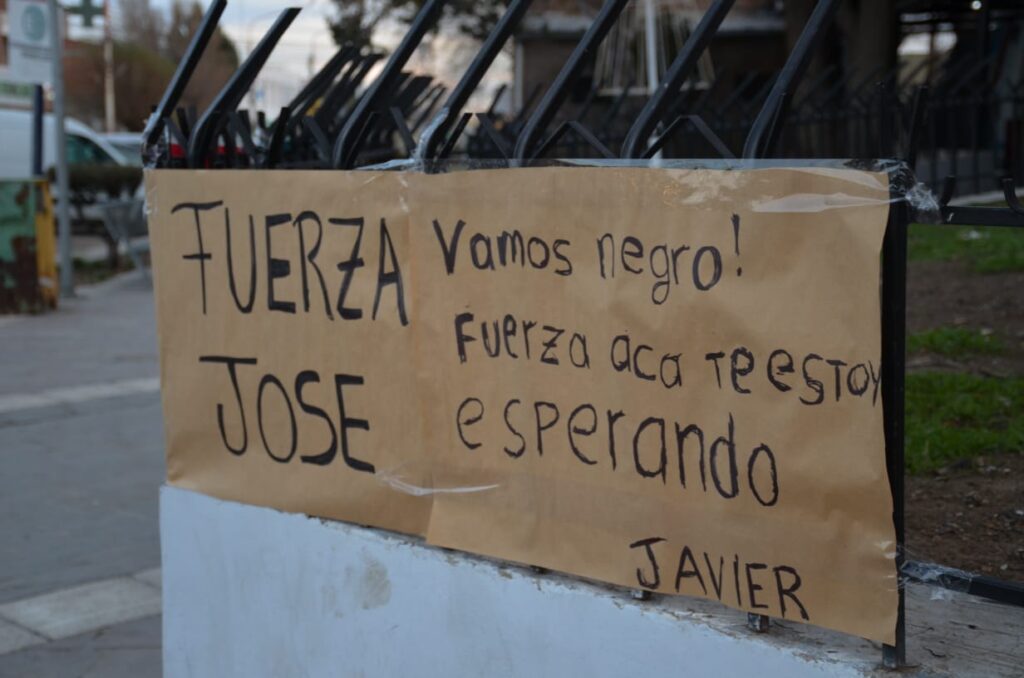 FUERZA
JOSE
Vamos negro!
Fuerza aca te estoy
esperando
JAVIER